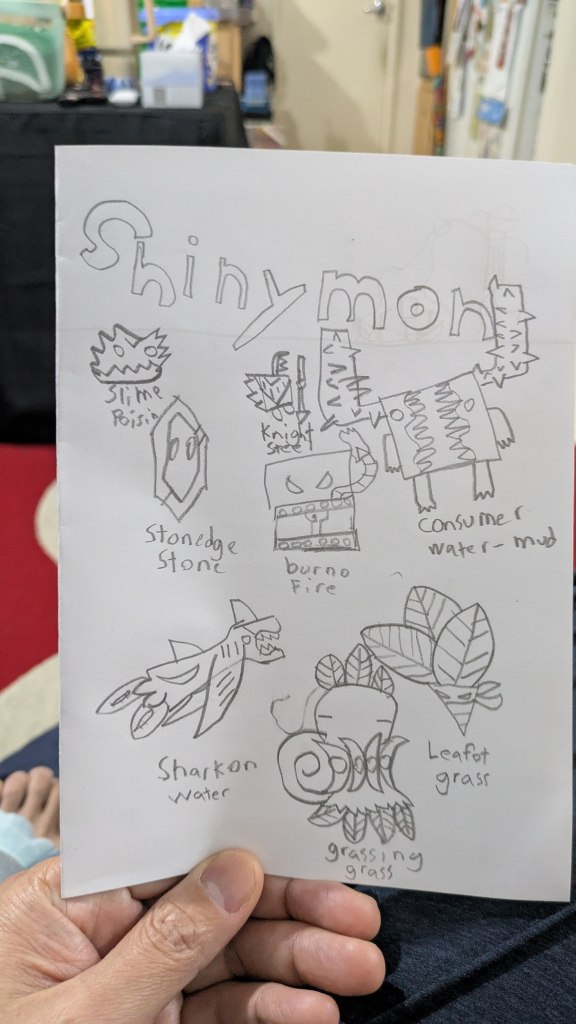 Shinymon
Slime
Poisin
Knight
steel
Stonedge
Stone
burno
Fire
Consumer
water-mud
Sharkon
water
Leafot
grass
grassing
grass